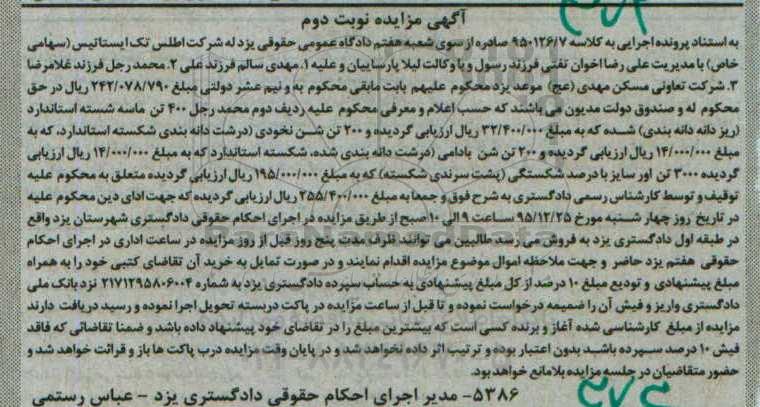 آگهی مزایده نوبت دوم
به استناد پرونده اجرایی به کلاسه ۹۵۰۱۲۶/۷ صادره از سوی شعبه هفتم دادگاه عمومی حقوقی یزد له شرکت اطلس تک ایستاتیس (سهامی
خاص) با مدیریت علی رضا اخوان تفتی فرزند رسول و با وکالت لیلا پارساییان و علیه ۱. مهدی سالم فرزند علی ۲. محمد رجل فرزند غلامرضا
۳. شرکت تعاونی مسکن مهدی (عج) موعد یزد محکوم علیهم بابت مابقی محکوم به و نیم عشر دولتی مبلغ ۲۴۲/۰۷۸/۷۹۰ ریال در حق
محکوم له و صندوق دولت مدیون می باشند که حسب اعلام و معرفی محکوم علیه ردیف دوم محمد رجل ۴۰۰ تن ماسه شسته استاندارد
(ریز دانه دانه بندی) شده که به مبلغ ۳۲/۴۰۰/۰۰۰ ریال ارزیابی گردیده و ۲۰۰ تن شن نخودی (درشت دانه بندی شکسته استاندارد، که به
مبلغ ۱۴/۰۰۰/۰۰۰ ریال ارزیابی گردیده و ۲۰۰ تن شن بادامی (درشت دانه بندی شده، شکسته استاندارد که به مبلغ ۱۴/۰۰۰/۰۰۰ ریال ارزیابی
گردیده ۳۰۰۰ تن اور سایز با درصد شکستگی (پشت سرندی شکسته) که به مبلغ ۱۹۵/۰۰۰/۰۰۰ ریال ارزیابی گردیده متعلق به محکوم علیه
توقیف و توسط کارشناس رسمی دادگستری به شرح فوق و جمعا به مبلغ ۲۵۵/۴۰۰/۰۰۰ ریال ارزیابی گردیده که جهت ادای دین محکوم علیه
در تاریخ روز چهار شنبه مورخ ۹۵/۱۲/۲۵ ساعت ۹ الی ۱۰ صبح از طریق مزایده در اجرای احکام حقوقی دادگستری شهرستان یزد واقع
در طبقه اول دادگستری یزد به فروش می رسد طالبین می توانند ظرف مدت پنج روز قبل از روز مزایده در ساعت اداری در اجرای احکام
حقوقی هفتم یزد حاضر و جهت ملاحظه اموال موضوع مزایده اقدام نمایند و در صورت تمایل به خرید آن تقاضای کتبی خود را به همراه
مبلغ پیشنهادی و تودیع مبلغ ۱۰ درصد از کل مبلغ پیشنهادی به حساب سپرده دادگستری یزد به شماره ۲۱۷۱۲۹۵۸۰۶۰۰۴ نزد بانک ملی
دادگستری واریز و فیش آن را ضمیمه درخواست نموده و تا قبل از ساعت مزایده در پاکت دربسته تحویل اجرا نموده و رسید دریافت دارند
مزایده از مبلغ کارشناسی شده آغاز و برنده کسی است که بیشترین مبلغ را در تقاضای خود پیشنهاد داده باشد و ضمنا تقاضائی که فاقد
فیش ۱۰ درصد سپرده باشد بدون اعتبار بوده و ترتیب اثر داده نخواهد شد و در پایان وقت مزایده درب پاکت ها باز و قرائت خواهد شد و
حضور متقاضیان در جلسه مزایده بلامانع خواهد بود.
۵۳۸۶- مدیر اجرای احکام حقوقی دادگستری یزد - عباس رستمی